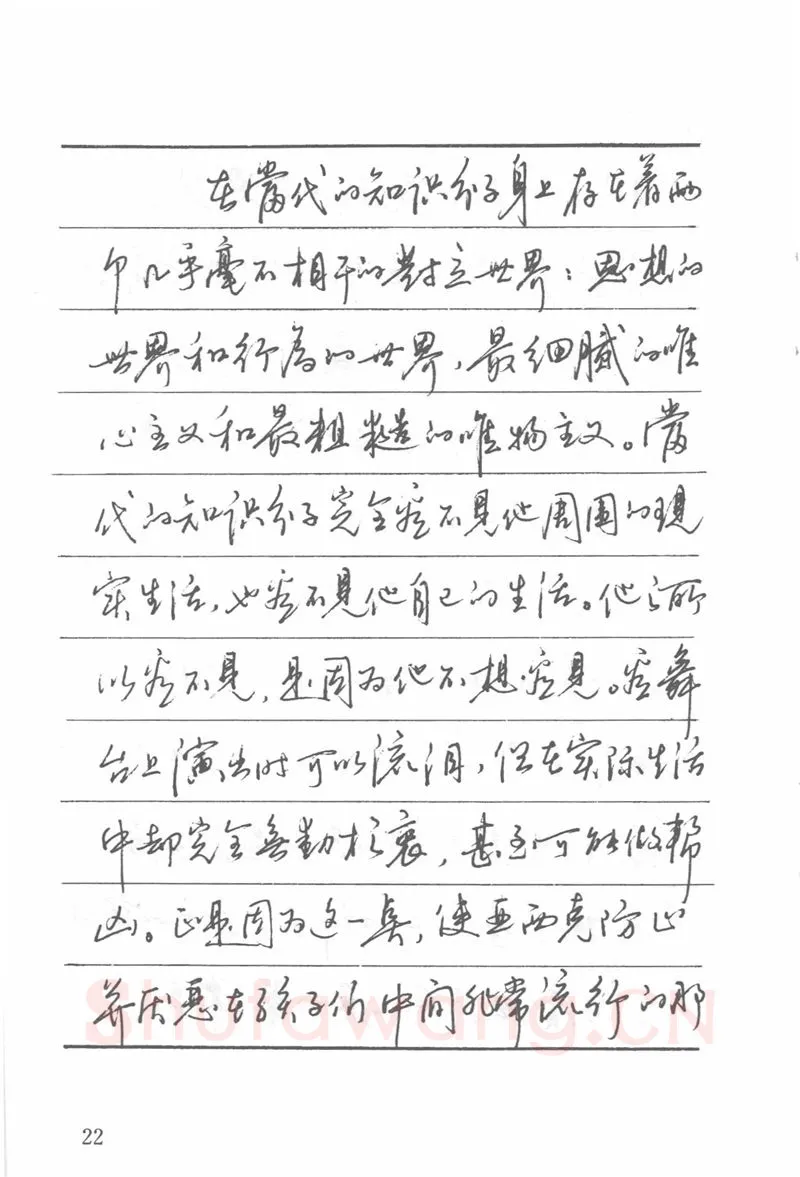 在當代的知识分子身上存在着两
个几乎毫不相干的對立世界：思想的
世界和行為的世界，最细腻的唯
心主义和最粗糙的唯物主义。當
代的知识分子完全看不見他周围的現
实生活，也看不見他自己的生活。他之所
以看不見，是因为他不想看見。看舞
台上演出时可以流泪，但在实际生活
中却完全無動於衷，甚至可能做帮
凶。正是因为这一點，使亚西克防止
并厌恶在孩子们中间非常流行的那
Shufawang.CN
22